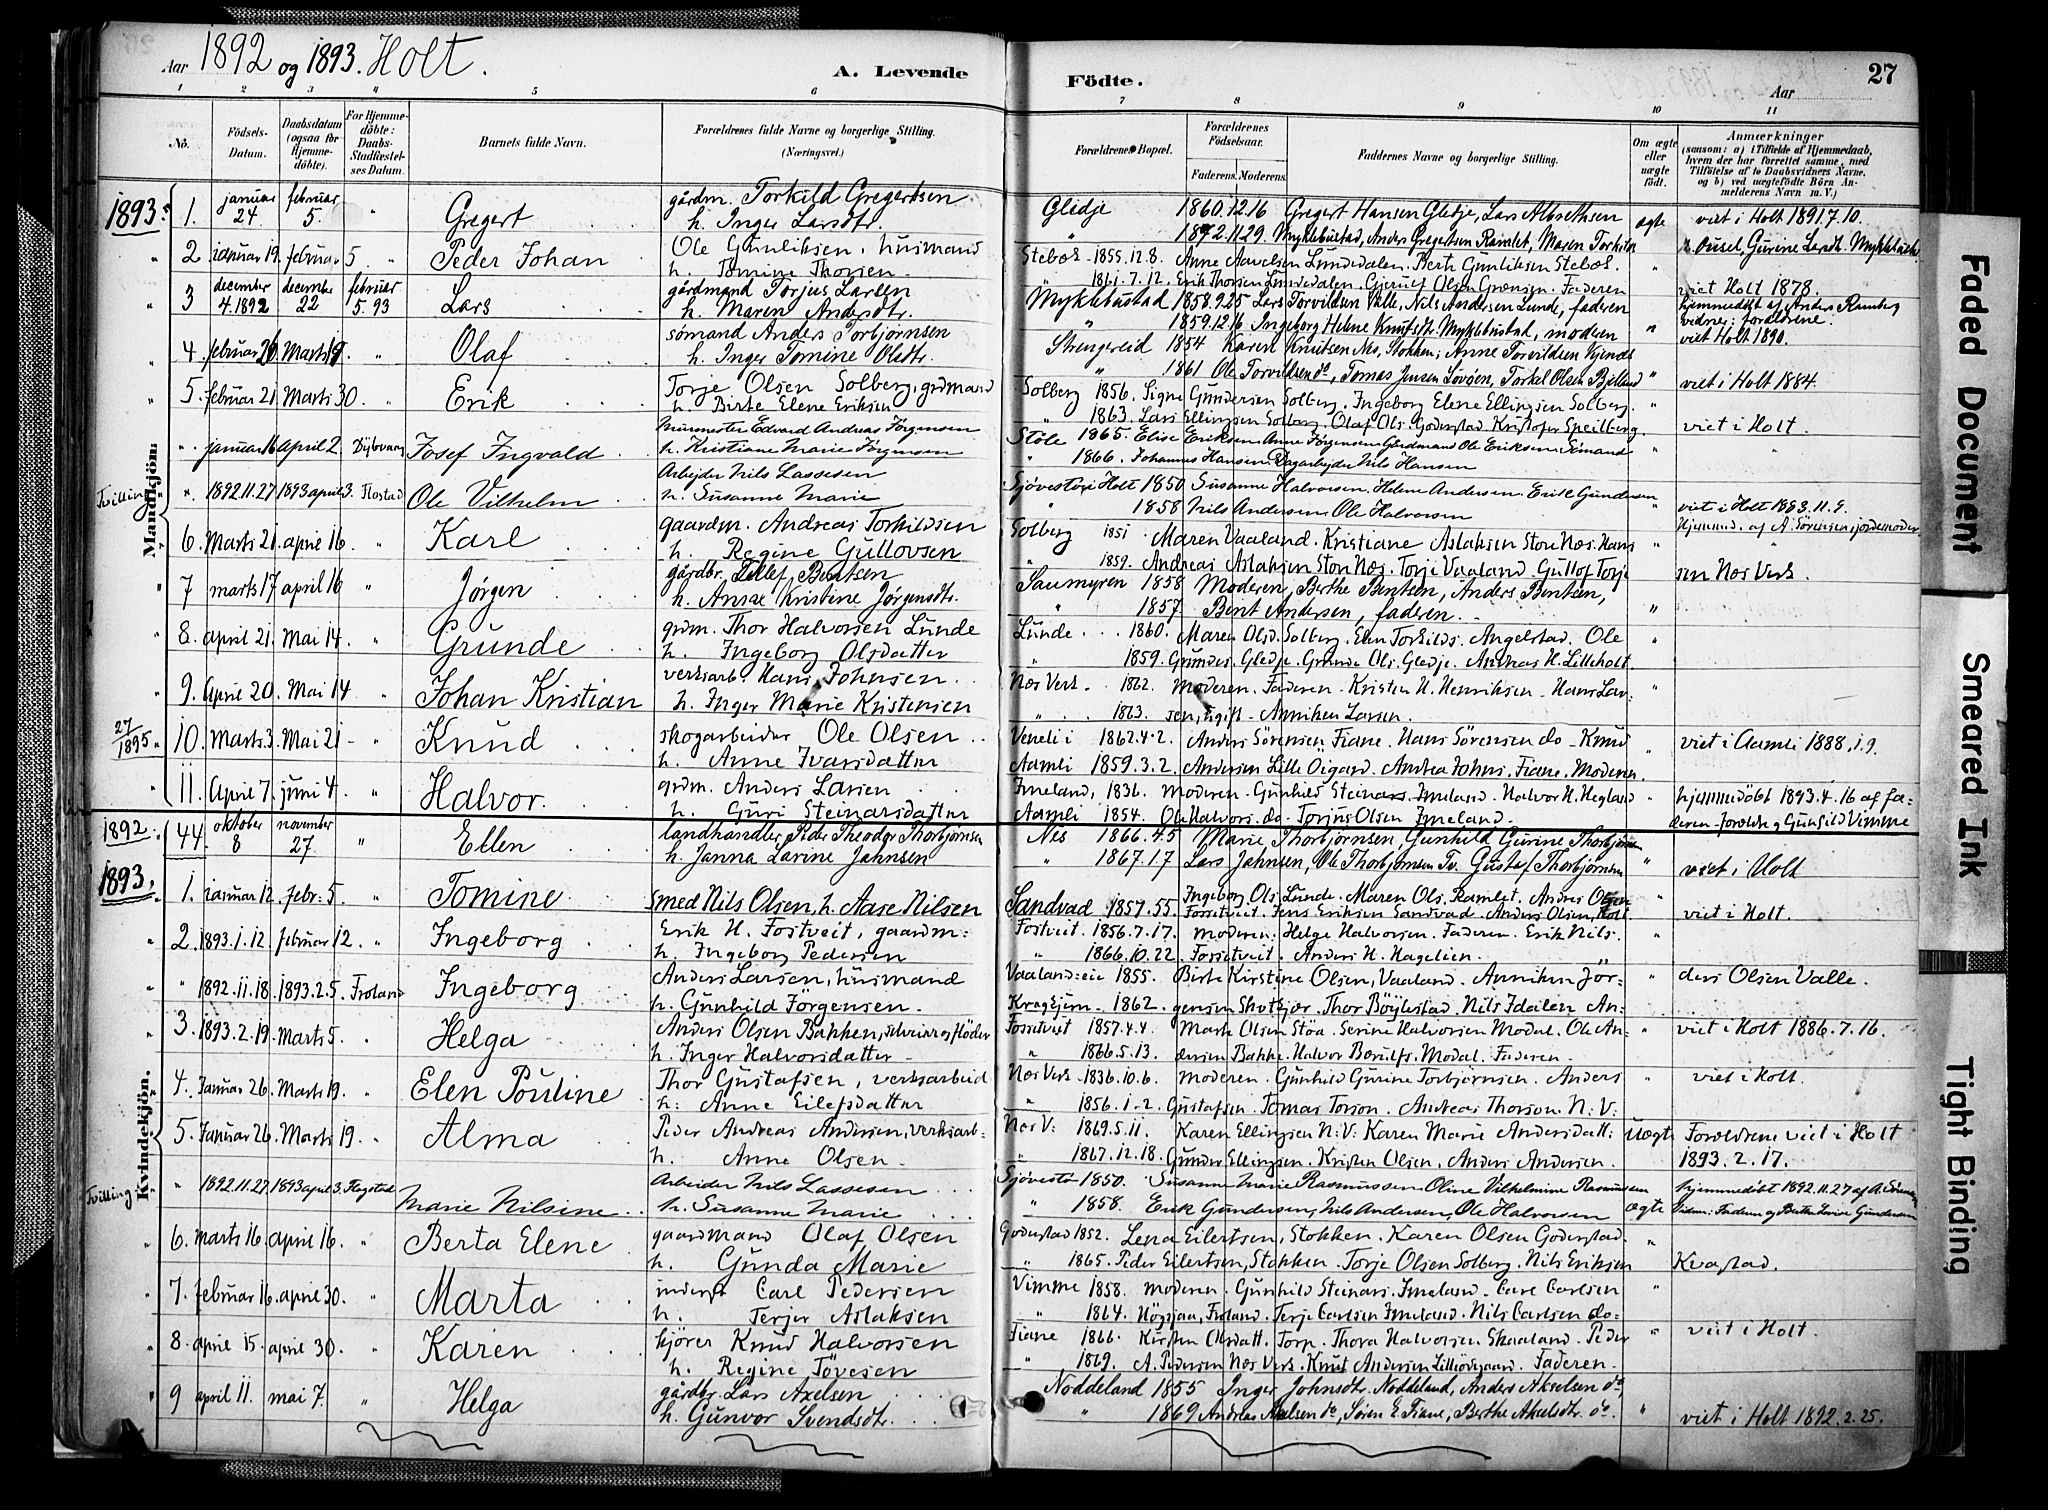 Aar 1892 og 1893. Holt.
A. Levende Fødte.
Aar
27
1 2 3 4 5 6 7 8 9 10 11
No.
Födsels-Datum.
Daabsdatum (ogsaa for Hjemme-döbte).
For Hjemme-döbte: Daabs-Stadfæstel-ses Datum.
Barnets fulde Navn.
Forældrenes fulde Navne og borgerlige Stilling. (Næringsvei.)
Forældrenes Bopæl.
Forældrenes Födselsaar.
Faderens. Moderens.
Faddernes Navne og borgerlige Stilling.
Om ægte eller uægte födt.
Anmærkninger
(saasom: a) i Tilfælde af Hjemmedaab, hvem der har forrettet samme, med Tilföielse af to Daabsvidners Navne. og b) ved uægtefödte Börn An-melderens Navn m. V.)
Mandkjön.
1893. 1. januar 24. februar 5. " Gregert gårdm. Torkild Gregertsen Gledje 1860.12.16 Gregert Hansen Gledje, Lars Albrethsen ægte viet i Holt 1891.7.10.
h. Inger Larsdtr. " 1872.11.29. Myklebustad, Anders Gregertsen Ramlet, Maren Torkilds
" 2 januar 19. februar 5 " Peder Johan Ole Gunliksen, husmand Stebæk 1855.12.8. Anne Aavelsen Lundedalen. Berte Gunliksen Stebæk. "
h. Tomine Thorsen " 1861.7.12. Erik Thorsen Lundedalen. Olsen Grønsen. Faderen viet Holt 1878.
" 3 december 4. 1892 december 22 februar 5. 93 Lars gårdmand Torjus Larsen Myklebustad 1858.9.25 Lars Torvildsen Valle, Nils Andersen Lunde, faderen hjemmedøbt af Anders Ramberg
h. Maren Andersdtr. " 1859.12.16 Ingeborg Helene Knutsdtr. Myklebustad, moderen " vidner: forældrene.
" 4. februar 20 Marts 19. " Olaf sømand Anders Torbjørnsen Strengereid 1854 Karen Knutsen Nes, Stokken; Anne Torvildsen viet Holt 1890.
h. Inger Tomine Olsdtr. " 1861 Ole Torvildsen do, Tomas Jensen Løvåsen, Torkel Olsen "
" 5. februar 21. Marts 30. " Erik Torje Olsen Solberg, grdmand Solberg 1856. Signe Gundersen Solberg. Ingeborg Elene Ellingsen Solberg. " viet i Holt 1884.
h. Birte Elene Eriksen " 1863. Lars Ellingsen Solberg. Olaf Ols. Goderstad. Kristofer
" januar 16 april 2. Dybvaag Josef Ingvald Murmester Edvard Andreas Jørgensen Støle 1865. Elise Eriksen. Anne Jørgensen. Gardmand Ole Eriksen. Sømand " viet i Holt.
h. Kristiane Marie Jørgensen " 1866. Johannes Hansen. Dagarbejder Nils Hansen
Tvilling " 1892.11.27 1893 april 3. Flostad Ole Vilhelm Arbejder Nils Lassesen i Holt 1850 Susanne Halvorsen. Helene Andersen. Erik Gundersen "
h. Susanne Marie " 1858 Nils Andersen. Ole Halvorsen viet i Holt 1883.11.9.
6. Marts 21. april 16 " Karl gaardm. Andreas Torkildsen Solberg 1851 Maren Vaaland. Kristiane Aslaksen Store Næs. Hans " Hjemmd. af A. Sørensen, jordemoder
h. Regine Gullovsen " 1859. Andreas Aslaksen Store Næs. Torje Vaaland. Gullof Torje sen Næs Verk.
" 7 marts 17 april 16 " Jørgen gårdbr. Tellef Bentsen Saumyren 1858 Moderen, Berthe Bentsen, Anders Bentsen,
h. Kristine Jørgensdtr. " 1857 Bent Andersen, faderen. "
" 8. april 21. Mai 14. " Grunde grdm. Thor Halvorsen Lunde Lunde 1860. Maren Olsd. Solberg. Elen Torkilds. Angelstad. Ole "
h. Ingeborg Olsdatter " 1859. Grundes. Gledje. Grunde Ols. Gledje. Andreas H. Lilleholt
" 9. April 20. Mai 14 " Johan Kristian verksarb. Hans Johnsen Næs Verk. 1862. Moderen. Faderen. Kristen H. Henriksen. Hans Lar- "
h. Inger Marie Kristensen " 1863. sen, ugift. Anniken Larsen.
27/1895 " 10. Marts 3. Mai 21 " Knud skogarbeider Ole Olsen i 1862.4.2. Anders Sørensen Fiane. Hans Sørensen do. Knud " viet i Aamli 1888.1.9.
h. Anne Ivarsdatter Aamli 1859.3.2. Andersen Lille Øigard. Andrea Johns. Fiane. Moderen.
" 11. April 7. juni 4 " Halvor grdm. Anders Larsen Imeland, 1836. Moderen. Gunhild Steinars. Imeland. Halvor H. Hegland " hjemmedøbt 1893.4.16 af fa-
h. Guri Steinarsdatter Aamli 1854. Ole Halvors. do. Torjus Olsen Imeland. deren. Foreldre og Gunhild Vimme
Kvindekjön.
1892. 44 oktober 8 november 27 " Ellen landhandler, Peder Theodor Thorbjørnsen Nes 1866.4.5 Marie Thorbjørnsen, Gunhild Gurine Thorbjørnsen
h. Janna Larine Jahnsen " 1867.1.7 Lars Jahnsen, Ole Thorbjørnsen Tv. Gustaf Thorbjørnsen " viet i Holt
1893. 1. januar 12. Febr: 5. " Tomine smed Nils Olsen, h. Aase Nilsen Sandvad 1857. 55. Ingeborg Ols. Lunde. Maren Ols. Ramlet. Anders Olsen "
Fossetveit. Jens Eriksen Sandvad. Anders Olsen, Holt viet i Holt.
" 2. 1893.1.12 februar 12. " Ingeborg Erik H. Fostveit, gaardm: Fostveit. 1856.7.17. moderen. Helge Halvorsen. Faderen. Erik Nils. "
h. Ingeborg Pedersen " 1866.10.22. Fossetveit. Anders H. Hagelien.
" " 1892.11.18. 1893.2.5. Froland Ingeborg Anders Larsen, husmand Vaaland:eie 1855. Birte Kirstine Olsen, Vaaland. Anniken Jør- " ders Olsen Valle.
h. Gunhild Jørgensen. 1862. gensen Thor Bøylestad. Nils Idalen An-
" 3. 1893.2.19 Marts 5. " Helga Anders Olsen Bakken, selveier og fløder Fossetveit 1857.4.4. Marte Olsen Støa. Serine Halvorsen Modal. Ole An- " viet i Holt 1886.7.16.
h. Inger Halvorsdatter " 1866.5.13. dersen Bakke. Halvor Modal. Faderen.
4. Januar 26. Marts 19. " Elen Pouline Thor Gustafsen, verksarbeid Næs Verk 1836.10.6. moderen. Gunhild Gurine Torbjørnsen. Anders " viet i Holt.
h: Anne Eilefsdatter " 1856.1.2. Gustafsen. Tomas Torson. Andreas Thorson. N: V:
5. Januar 26. Marts 19. " Alma Peder Andreas Andersen, verksarb- Næs V: 1869.5.11. Karen Ellingsen N: V: Karen Marie Andersdatt: Uægte Foreldrene viet i Holt
h. Anne Olsen. " 1867.12.18. Gunder Ellingsen. Kristen Olsen. Anders Andersen. 1893.2.17.
Tvilling " 1892.11.27. 1893 april 3. Flagstad Marie Nilsine Arbeider Nils Lassesen 1850. Susanne Marie Rasmussen Oline Vilhelmine Rasmussen hjemmedøbt 1892.11.27 af A.
h. Susanne Marie " 1858. Erik Gundersen, Nils Andersen, Ole Halvorsen ægte
" 6. Marts 16. april 16. " Berta Elene gaardmand Olaf Olsen Goderstad 1852. Lena Eilertsen, Stokken. Karen Olsen Goderstad. "
h. Gunda Marie " 1865. Peder Eilertsen, Stokken. Torje Olsen Solberg. Nils Eriksen Kvastad.
" 7. februar 16. april 30. " Marta inderst Carl Pedersen Vimme 1858. moderen. Gunhild Steinars. Imeland. Carl Carlsen "
h. Terjer Aslaksen " 1864. Froland. Terje Carlsen Imeland. Nils Carlsen do-
" 8. april 15. april 30. " Karen kjører Knud Halvorsen Fiane 1866. Kirsten Olsdatt. Torp. Thora Halvorsen Skaaland. Peder " viet i Holt.
h. Regine Tøvesen " 1869. A. Pedersen Næs Verk. Knut Andersen Faderen.
" 9 april 11. mai 7. " Helga gårdbr. Lars Axelsen Noddeland 1855 Inger Johnsdtr. Noddeland, Anders Akselsen do.
h. Gunvor Svendsdtr. " 1869 Andreas Akselsen do, Søren E. Fiane, Berthe Akselsdtr. do. " viet i Holt 1892.2.25.
Faded Document
Smeared Ink
Tight Binding